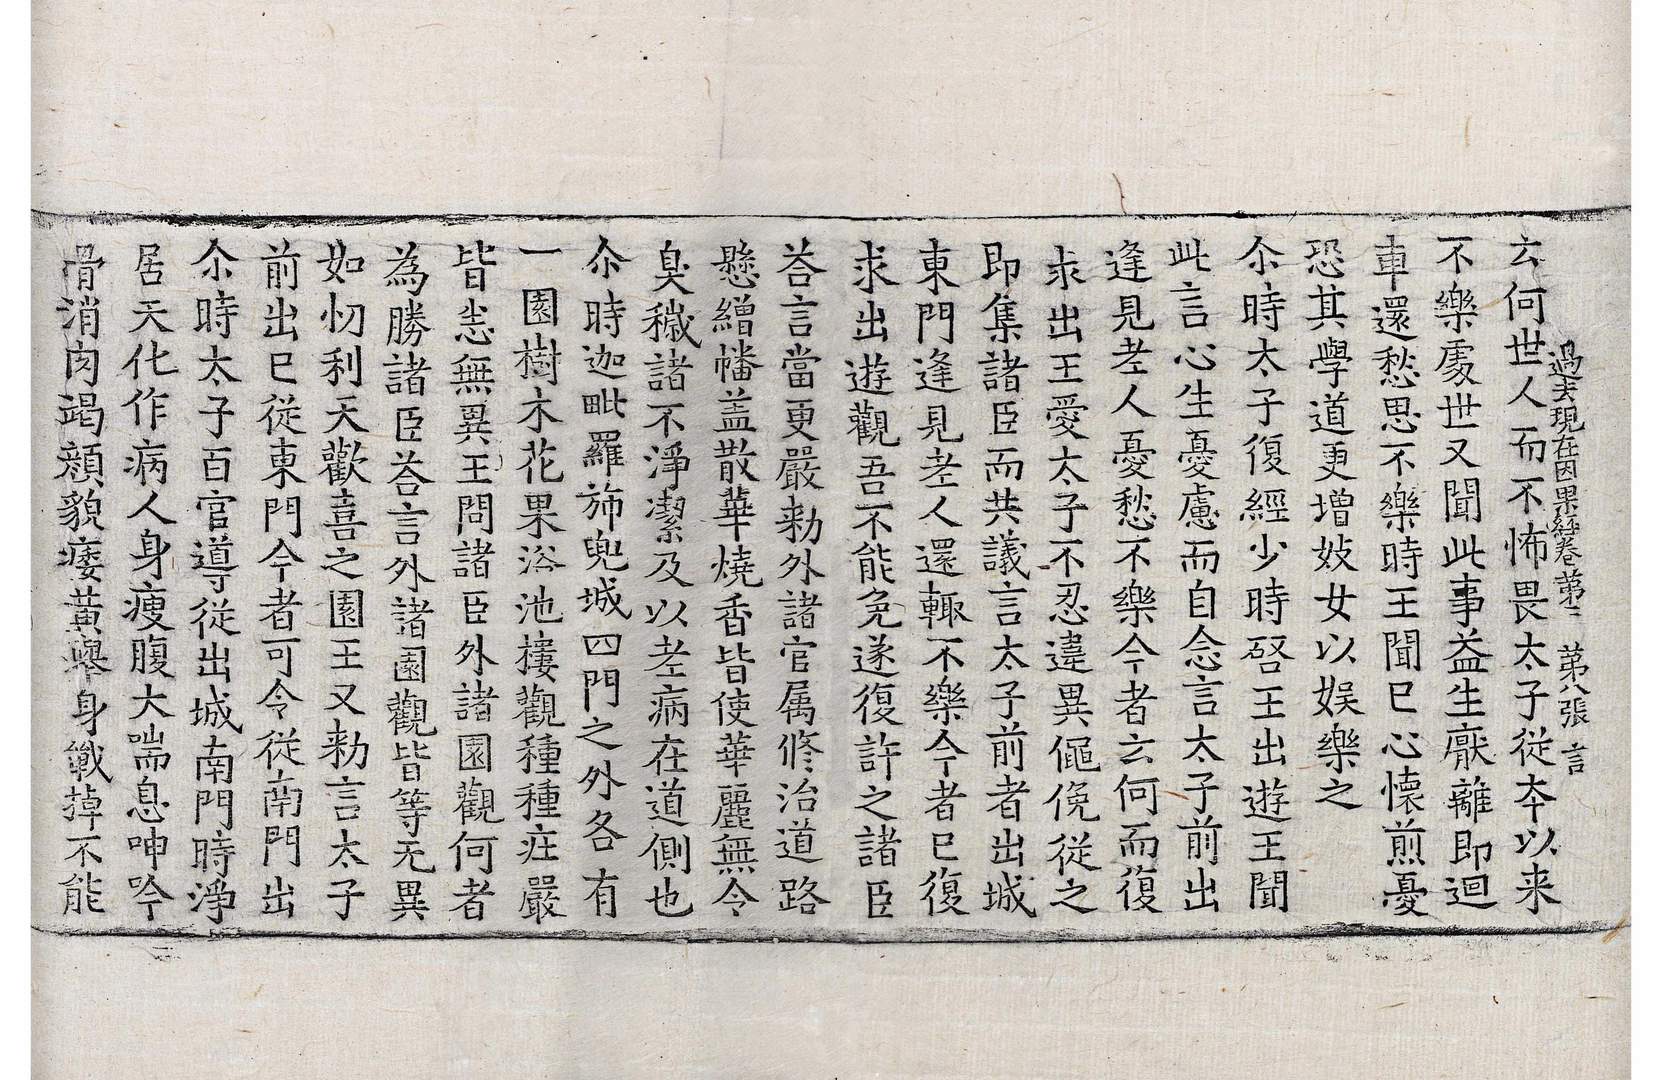 過去現在因果經卷第二　第八張　言
云何世人而不怖畏太子從夲以来
不樂處世又聞此事益生厭離即迴
車還愁思不樂時王聞已心懷煎憂
恐其學道更增妓女以娛樂之
尒時太子復經少時啓王出遊王聞
此言心生憂慮而自念言太子前出
逢見老人憂愁不樂今者云何而復
求出王愛太子不忍違異僶俛從之
即集諸臣而共議言太子前者出城
東門逢見老人還輙不樂今者已復
求出遊觀吾不能免遂復許之諸臣
荅言當更嚴勑外諸官属修治道路
懸繒幡盖散華燒香皆使華麗無令
臭穢諸不淨潔及以老病在道側也
尒時迦毗羅斾兜城四門之外各有
一園樹木花果浴池樓觀種種莊嚴
皆悉無異王問諸臣外諸園觀何者
為勝諸臣荅言外諸園觀皆等无異
如忉利天歡喜之園王又勑言太子
前出已從東門今者可令從南門出
尒時太子百官導從出城南門時淨
居天化作病人身瘦腹大喘息呻吟
骨消肉竭顏貌痿黃舉身戰掉不能